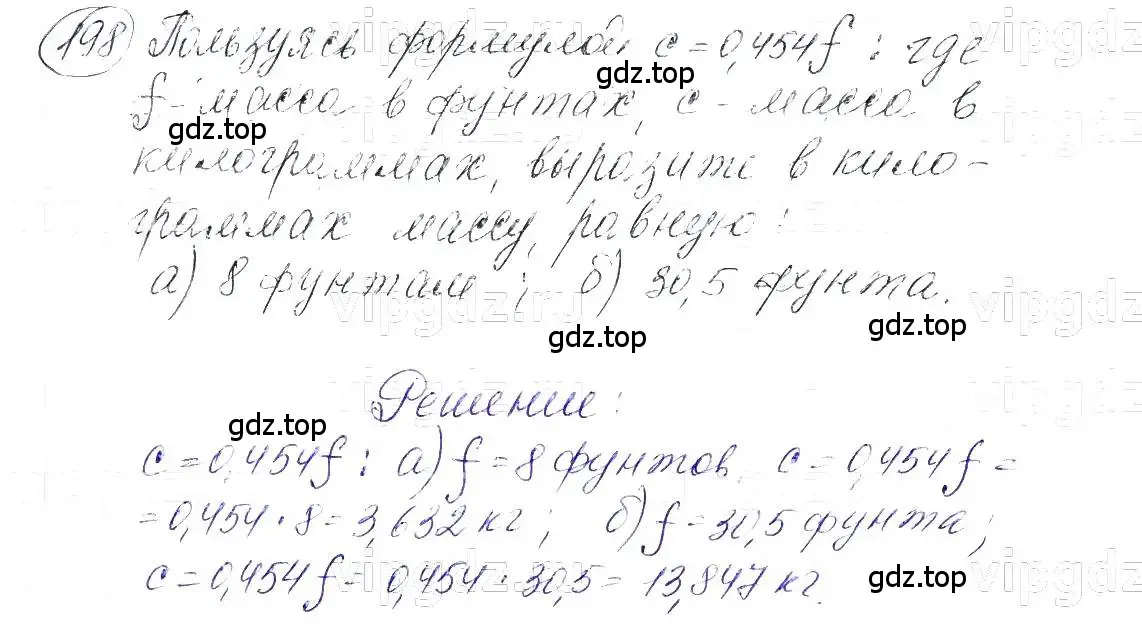 198 Пользуясь формулой c = 0,454f : где
gdz.top
f - масса в фунтах, c - масса в
gdz.top
килограммах, выразите в кило-
граммах массу, равную:
а) 8 фунтам ; б) 30,5 фунта.
gdz.top
gdz.top
Решение:
gdz.top
c = 0,454f : а) f = 8 фунтов, c = 0,454f =
= 0,454 · 8 = 3,632 кг ; б) f = 30,5 фунта ;
c = 0,454f = 0,454 · 30,5 = 13,847 кг.
gdz.top